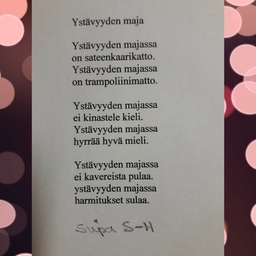 Ystävyyden maja
Ystävyyden majassa
on sateenkaarikatto.
Ystävyyden majassa
on trampoliinimatto.
Ystävyyden majassa
ei kinastele kieli.
Ystävyyden majassa
hyrrää hyvä mieli.
Ystävyyden majassa
ei kavereista pulaa.
ystävyyden majassa
harmitukset sulaa.
Sirpa S-H